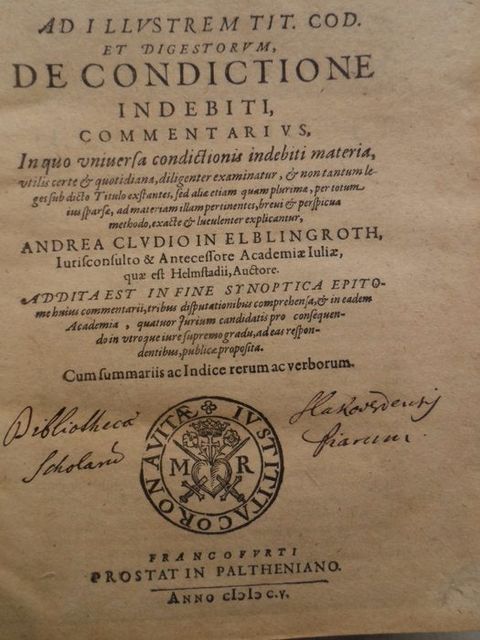 AD ILLVSTREM TIT. COD.
ET DIGESTORVM,
DE CONDICTIONE
INDEBITI,
COMMENTARIVS,
In quo vniuersa condictionis indebiti materia,
vtilis certe & quotidiana, diligenter examinatur, & non tantum le-
ges sub dicto Titulo exstantes, sed aliæ etiam quam plurimæ, per totum
ius sparsæ, ad materiam illam pertinentes, breui & perspicua
methodo, exacte & luculenter explicantur,
ANDREA CLVDIO IN ELBLINGROTH,
Iurisconsulto & Antecessore Academiæ Iuliæ,
quæ est Helmstadii, Auctore.
ADDITA EST IN FINE SYNOPTICA EPITO-
me huius commentarii, tribus disputationibus comprehensa, & in eadem
Academia, quatuor Jurium candidatis pro consequen-
do in vtroque iure supremo gradu, ad eas respon-
dentibus, publicæ proposita.
Cum summariis ac Indice rerum ac verborum.
Bibliotheca
Scholarū
Piarum.
IVSTITIA CORONA VITÆ
M R
FRANCOFVRTI
PROSTAT IN PALTHENIANO.
ANNO CIↃIↃC.V.